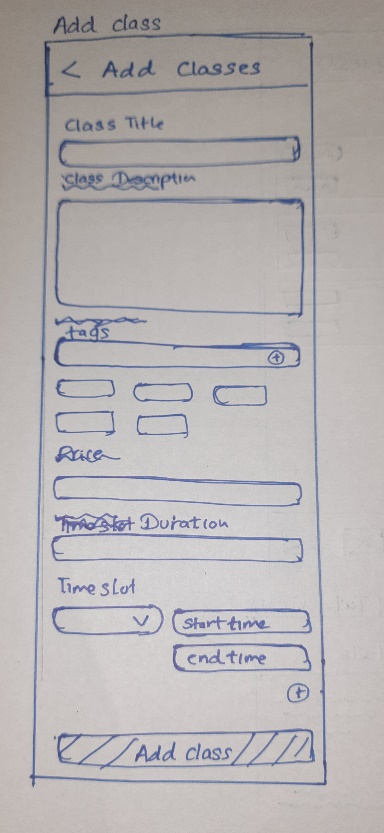 Add class
< Add Classes
Class Title
Class Description
Tags
Price
Time slot Duration
Time slot
Start time
end time
Add class